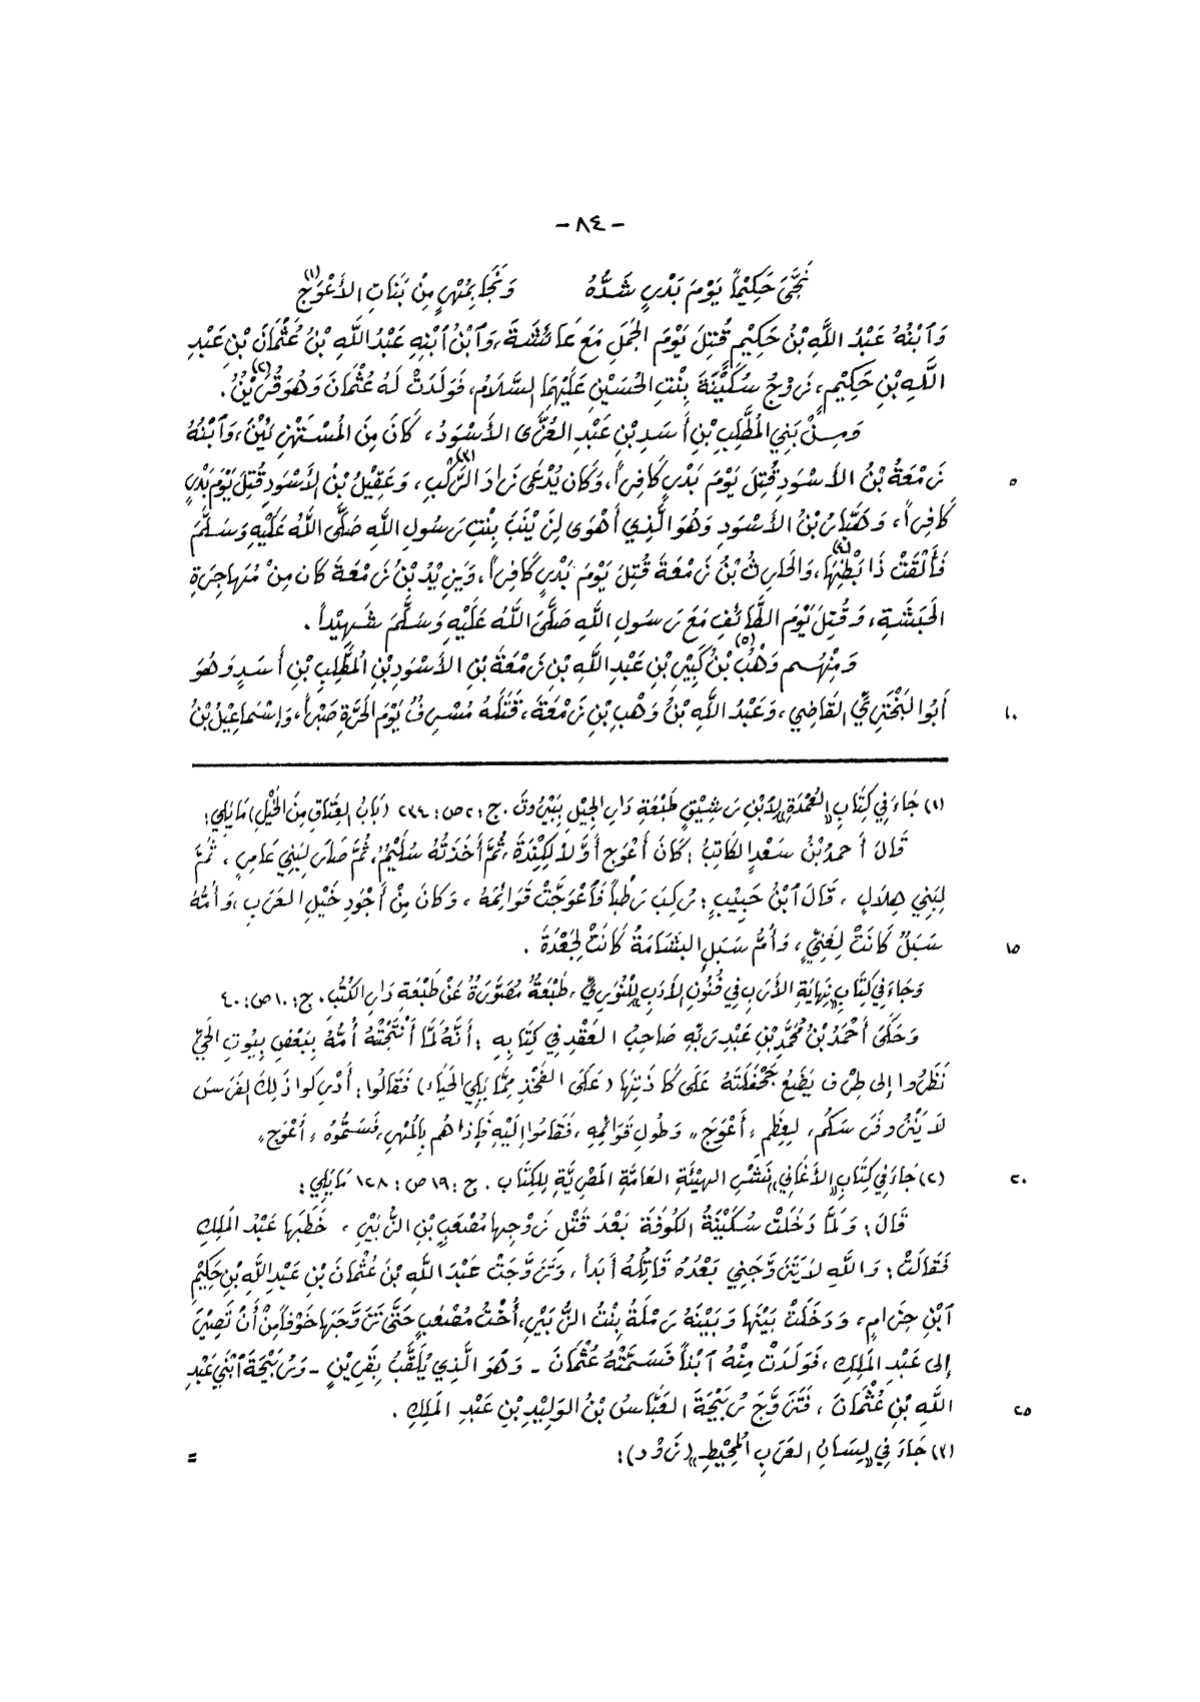 - ٨٤ -
نَجَّى حَكِيْمًا يَوْمَ بَدْرٍ شَدُّهُ وَنَجَا بِمُهْرٍ مِنْ بَنَاتِ الأَعْوَجِ (١)
وَٱبْنُهُ عَبْدُ اللَّهِ بْنُ حَكِيْمٍ قُتِلَ يَوْمَ الجَمَلِ مَعَ عَائِشَةَ، وَٱبْنُ ٱبْنِهِ عَبْدُ اللَّهِ بْنُ عُثْمَانَ بْنِ عَبْدِ
اللَّهِ بْنِ حَكِيْمٍ، زَوْجُ سُكَيْنَةَ بِنْتِ الحُسَيْنِ عَلَيْهِمَا السَّلَامُ، فَوَلَدَتْ لَهُ عُثْمَانَ وَهُوَ قُرَيْنٌ (٢).
وَمِنْ بَنِي المُطَّلِبِ بْنِ أَسَدِ بْنِ عَبْدِ العُزَّى الأَسْوَدُ، كَانَ مِنَ المُسْتَهْزِئِيْنَ، وَٱبْنُهُ
زَمْعَةُ بْنُ الأَسْوَدِ قُتِلَ يَوْمَ بَدْرٍ كَافِراً، وَكَانَ يُدْعَى زَادَ الرَّكْبِ (٣)، وَعَقِيْلُ بْنُ الأَسْوَدِ قُتِلَ يَوْمَ بَدْرٍ
٥
كَافِراً، وَهَبَّارُ بْنُ الأَسْوَدِ وَهُوَ الَّذِي أَهْوَى لِزَيْنَبَ بِنْتِ رَسُولِ اللَّهِ صَلَّى اللَّهُ عَلَيْهِ وَسَلَّمَ
فَأَلْقَتْ ذَا بَطْنِهَا (٤)، وَالحَارِثُ بْنُ زَمْعَةَ قُتِلَ يَوْمَ بَدْرٍ كَافِراً، وَيَزِيْدُ بْنُ زَمْعَةَ كَانَ مِنْ مُهَاجِرَةِ
الحَبَشَةِ، وَقُتِلَ يَوْمَ الطَّائِفِ مَعَ رَسُولِ اللَّهِ صَلَّى اللَّهُ عَلَيْهِ وَسَلَّمَ شَهِيْداً.
وَمِنْهُم وَهْبُ (٥) بْنُ كَبِيْرِ بْنِ عَبْدِ اللَّهِ بْنِ زَمْعَةَ بْنِ الأَسْوَدِ بْنِ المُطَّلِبِ بْنِ أَسَدٍ وَهُوَ
أَبُو البَخْتَرِيِّ القَاضِي، وَعَبْدُ اللَّهِ بْنُ وَهْبِ بْنِ زَمْعَةَ، قَتَلَهُ مُسْرِفٌ يَوْمَ الحَرَّةِ صَبْراً، وَإِسْمَاعِيْلُ بْنُ
١٠
(١) جَاءَ فِي كِتَابِ «العُمْدَةِ» لِابْنِ رَشِيْقٍ طَبْعَةِ دَارِ الجِيْلِ بِبَيْرُوتَ. ج: ٢ ص: ٢٣٤ (بَابُ العِتَاقِ مِنَ الخَيْلِ) مَا يَلِي:
قَالَ أَحمدُ بْنُ سَعْدٍ الكَاتِبُ: كَانَ أَعْوَج أَوَّلاً لِكِنْدَةَ، ثُمَّ أَخَذَتْهُ سُلَيْمٌ، ثُمَّ صَارَ لِبَنِي عَامِرٍ، ثُمَّ
لِبَنِي هِلَالٍ، قَالَ ٱبْنُ حَبِيْبٍ: رُكِبَ رَطْباً فَٱعْوَجَّتْ قَوَائِمُهُ، وَكَانَ مِنْ أَجْوَدِ خَيْلِ العَرَبِ، وَأُمُّهُ
سَبَلُ كَانَتْ لِغَنِيٍّ، وَأُمُّ سَبَلٍ البَشَامَةُ كَانَتْ لِجَعْدَةَ.
١٥
وَجَاءَ فِي كِتَابِ «نِهَايَةِ الأَرَبِ فِي فُنُونِ الأَدَبِ» لِلنُّوَيْرِيِّ، طَبْعَةٌ مُصَوَّرَةٌ عَنْ طَبْعَةِ دَارِ الكُتُبِ. ج: ١٠ ص: ٤٠
وَحَكَى أَحْمَدُ بْنُ مُحَمَّدِ بْنِ عَبْدِ رَبِّهِ صَاحِبُ العَقْدِ فِي كِتَابِهِ: أَنَّهُ لَمَّا أَنْتَجَتْهُ أُمُّهُ بِبَعْضِ بِيُوتِ الحَيِّ
نَظَرُوا إِلى طِرْفٍ يَضَعُ جَحْفَلَتَهُ عَلَى كَاذَتِهَا (عَلَى الفَخْذِ مِمَّا يَلِي الحَيَاءَ) فَقَالُوا: أَدْرِكُوا ذَلِكَ الفَرَسَ
لَا يَنْزُو فَرَسَكُم، لِعِظَمِ «أَعْوَجَ» وَطُولِ قَوَائِمِهِ، فَقَامُوا إِلَيْهِ فَإِذَا هُم بِالمُهْرِ، فَسَمُّوهُ «أَعْوَجَ»
(٢) جَاءَ فِي كِتَابِ «الأَغَانِي» نَشْرِ الهَيْئَةِ العَامَّةِ المَصْرِيَّةِ لِلكِتَابِ. ج: ١٩ ص: ١٢٨ مَا يَلِي:
٢٠
قَالَ: وَلَمَّا دَخَلَتْ سُكَيْنَةُ الكُوفَةَ بَعْدَ قَتْلِ زَوْجِهَا مُصْعَبِ بْنِ الزُّبَيْرِ، خَطَبَهَا عَبْدُ المَلِكِ
فَقَالَتْ: وَاللَّهِ لَا يَتَزَوَّجَنِي بَعْدَهُ قَاتِلُهُ أَبَداً، وَتَزَوَّجَتْ عَبْدَ اللَّهِ بْنَ عُثْمَانَ بْنِ عَبْدِ اللَّهِ بْنِ حَكِيْمِ
ٱبْنِ حِزَامٍ، وَدَخَلَتْ بَيْنَهَا وَبَيْنَهُ رَمْلَةُ بِنْتُ الزُّبَيْرِ، أُخْتُ مُصْعَبٍ حَتَّى تَزَوَّجَهَا خَوْفاً مِنْ أَنْ تَصِيْرَ
إِلى عَبْدِ المَلِكِ، فَوَلَدَتْ مِنْهُ ٱبْناً فَسَمَّتْهُ عُثْمَانَ - وَهُوَ الَّذِي يُلَقَّبُ بِقَرِيْنٍ - وَرُبَيْحَةَ ٱبْنَيْ عَبْدِ
اللَّهِ بْنِ عُثْمَانَ، فَتَزَوَّجَ رُبَيْحَةَ العَبَّاسُ بْنُ الوَلِيْدِ بْنِ عَبْدِ المَلِكِ.
٢٥
(٣) جَاءَ فِي «لِسَانِ العَرَبِ المُحِيْطِ» (زَوْد):
=